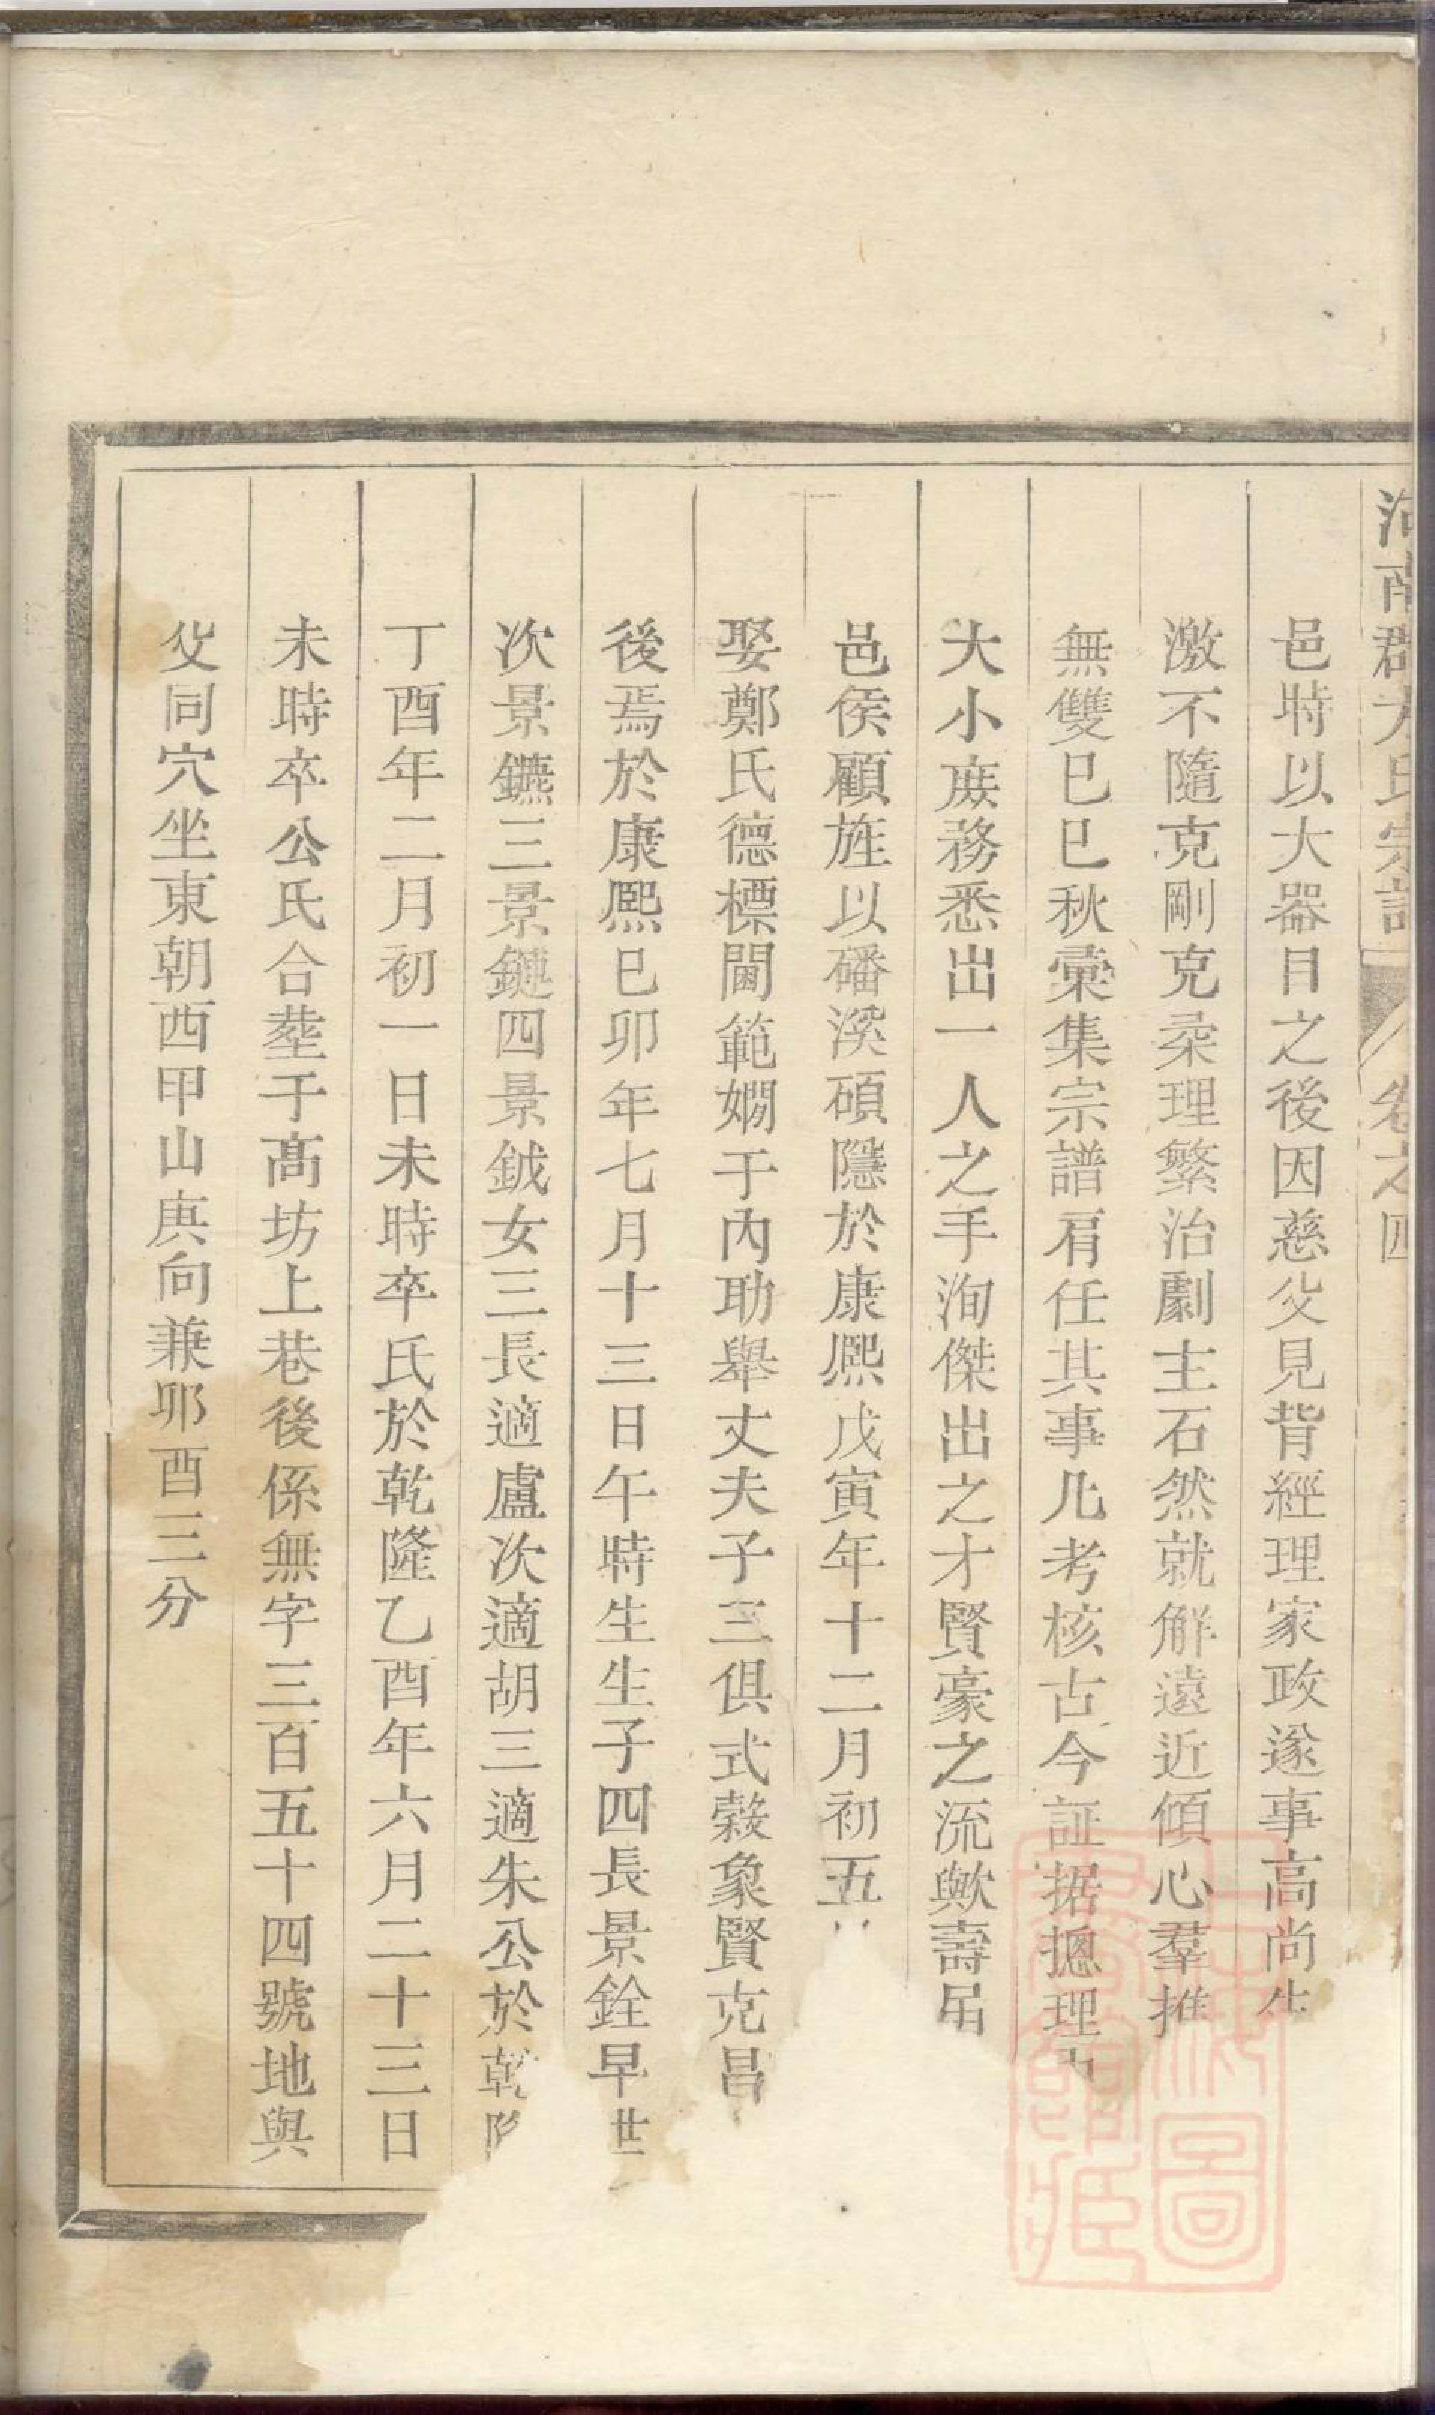 河南郡方氏宗譜 卷之四
邑特以大器目之後因慈父見背經理家政遂事高尚生
激不隨克剛克柔理繁治劇主石然就解遠近傾心羣推
無雙已巳秋彙集宗譜肩任其事凡考核古今証据摠理
大小庶務悉出一人之手洵傑出之才賢豪之流歟壽呂
邑侯顧旌以磻溪碩隱於康熙戊寅年十二月初五
娶鄭氏德標閫範嫺于內助舉丈夫子三俱式穀象賢克昌
後焉於康熙巳卯年七月十三日午時生生子四長景銓早世
次景鑣三景鏈四景鉞女三長適盧次適胡三適朱公於乾隆
丁酉年二月初一日未時卒氏於乾隆乙酉年六月二十三日
未時卒公氏合塟于高坊上巷後係無字三百五十四號地與
父同穴坐東朝西甲山庚向兼卯酉三分